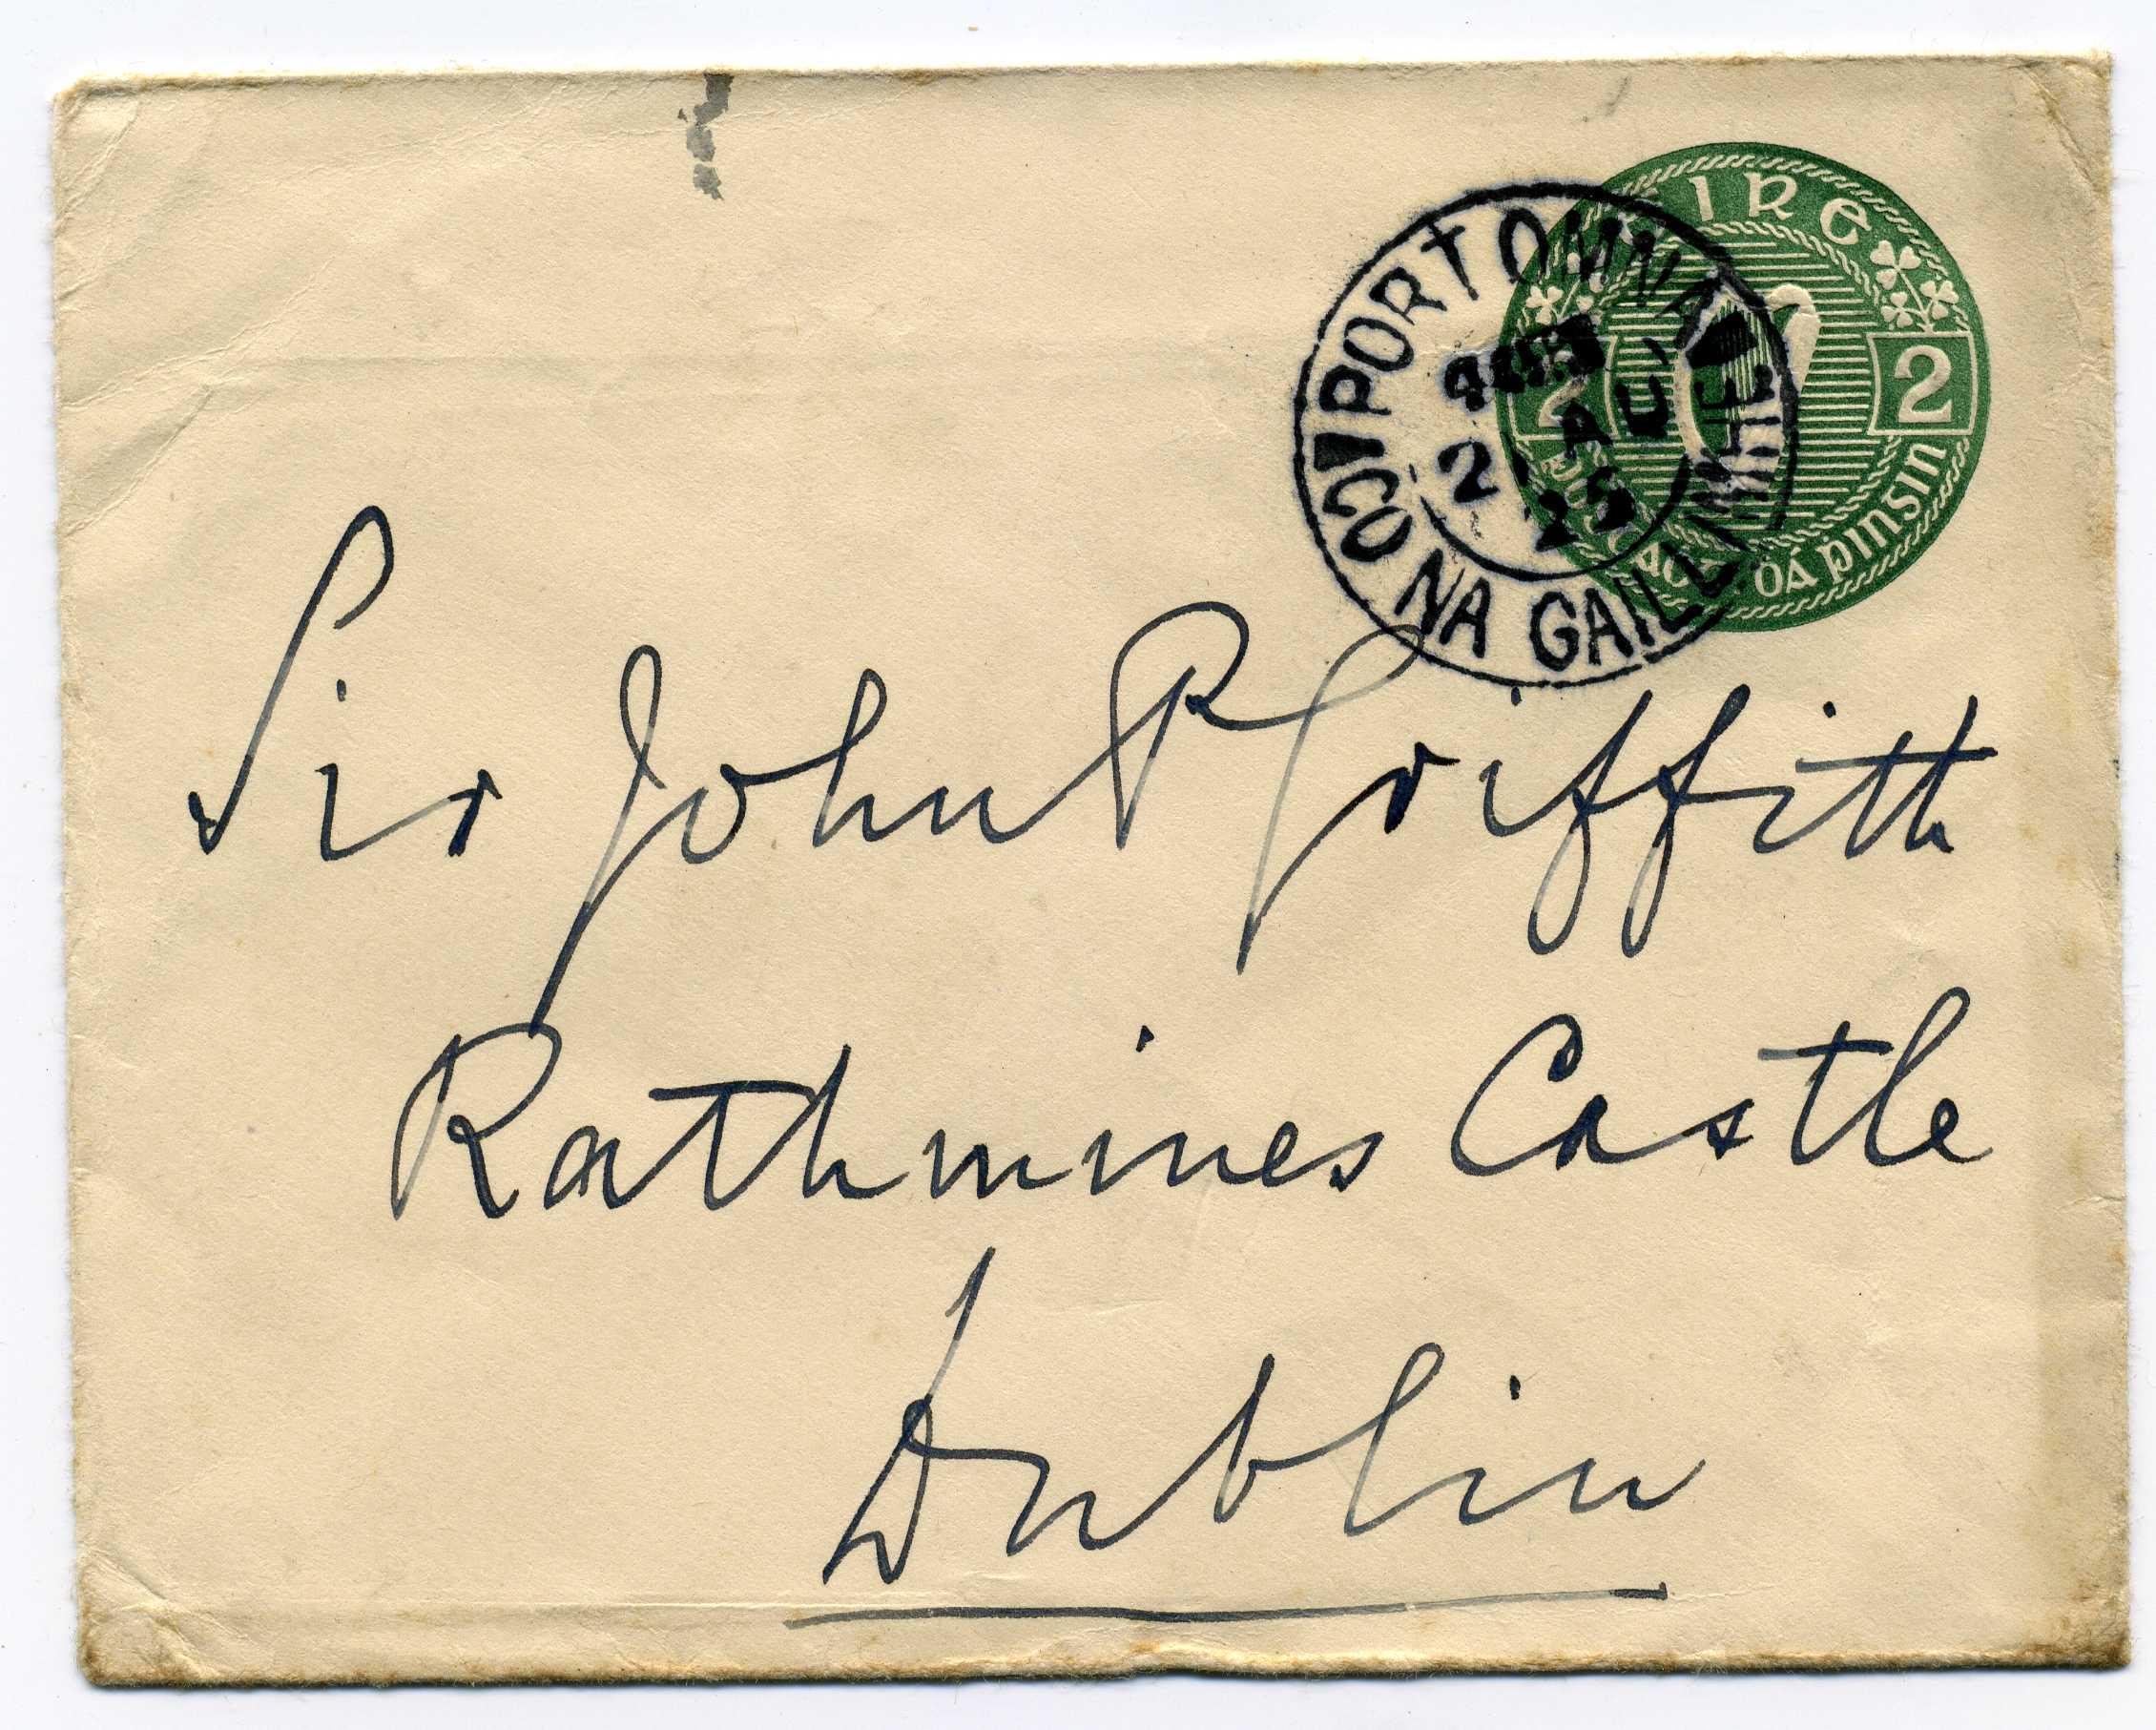 ÉIRE
2 2
DÁ PINSIN
PORTOMNA
CO NA GAILLIMHE
AU
2
25
Sir John P Griffith
Rathmines Castle
Dublin